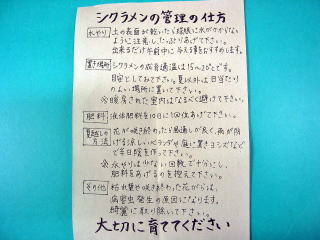 シクラメンの管理の仕方
水やり 土の表面が乾いたら球根に水がかからない
ように注意し、たっぷりあげて下さい。
出来るだけ午前中に与える事をおすすめします。
置き場所 シクラメンの成育適温は15〜20℃です。
目安としてみて下さい。夏以外は日当たり
のよい場所に置いて下さい。
※暖房された室内はなるべく避けて下さい。
肥料 液体肥料を10日に1回位あげて下さい。
夏越しの方法 花が咲き終わったら風通しが良く、雨が防
げる涼しいベランダや庭に置きヨシズなど
で半日陰を作って下さい。
※水やりは少ない回数で十分にし、
肥料をあげるのを控えて下さい。
その他 枯れ葉や咲き終わった花がらは、
病害虫発生の原因になります。
綺麗に取り除いて下さい。
大切に育ててください